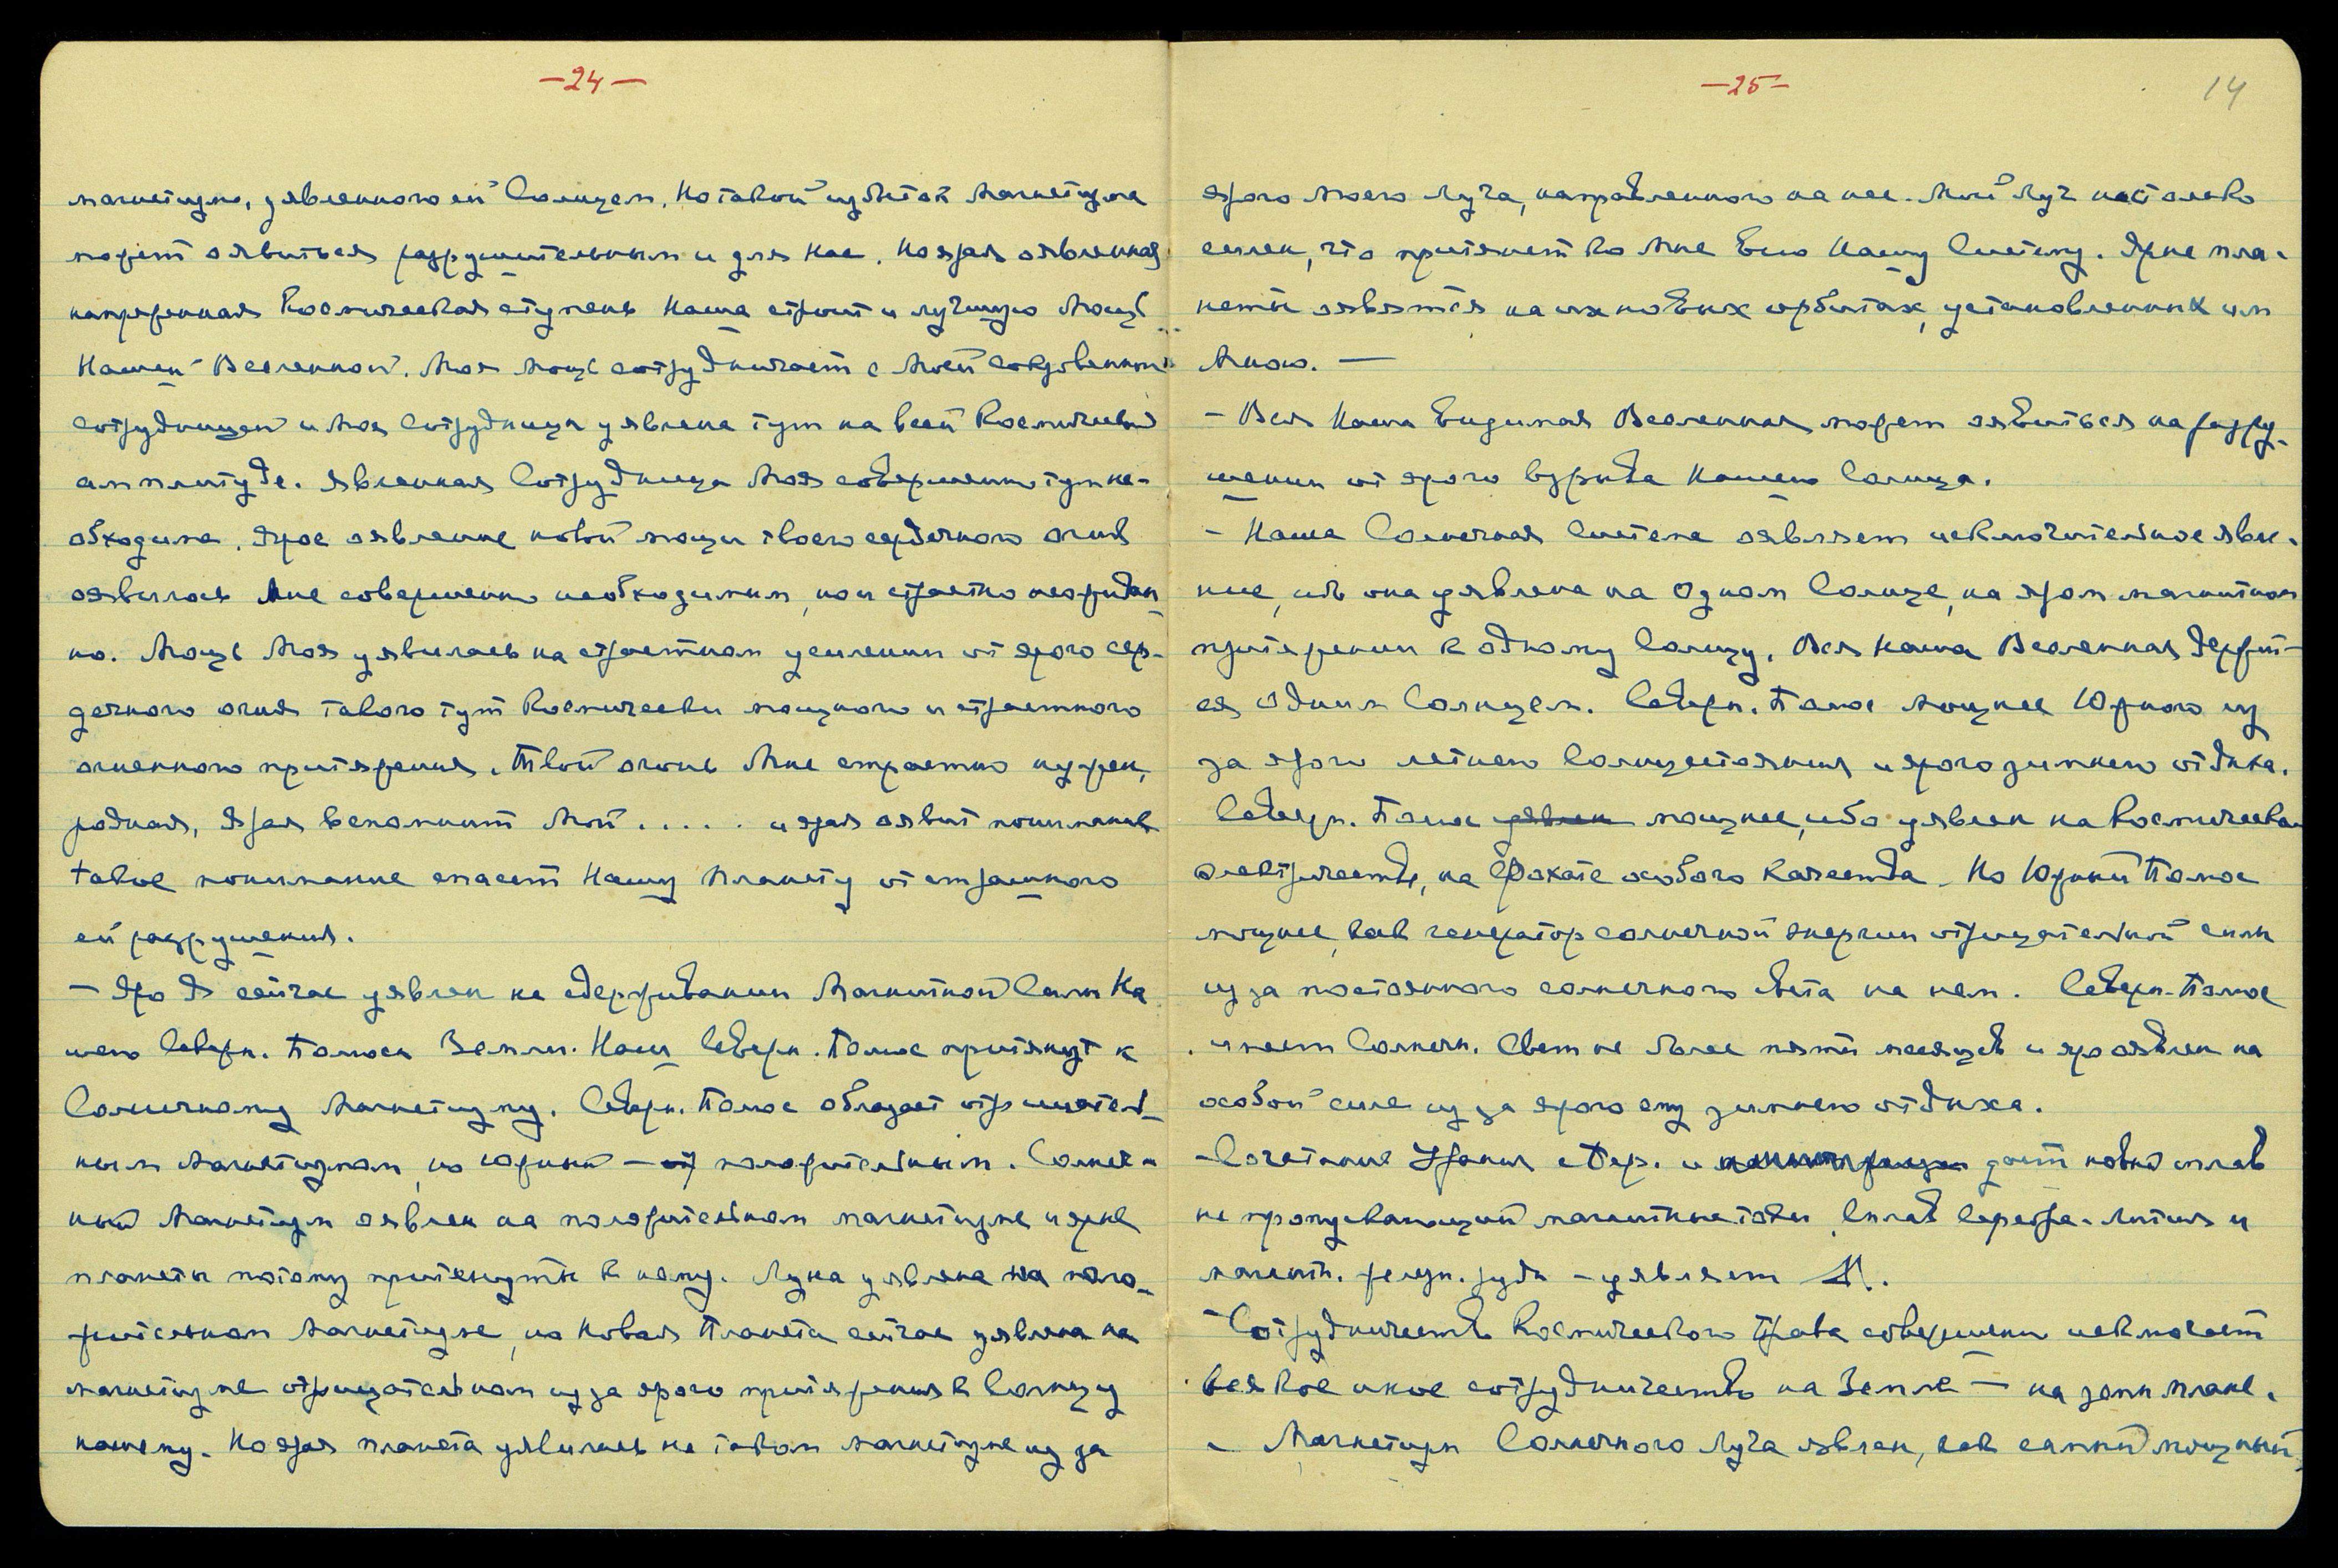 —24—
магнетизма, уявленного ей Солнцем. Но такой избыток магнетизма
может оявиться разрушительным и для Нас. Но ярая оявленная
напряженная Космическая ступень Наша строит и лучшую Мощь
Нашей Вселенной. Моя мощь сотрудничает с Моей Сокровенной
Сотрудницей и Моя Сотрудница уявлена тут на всей Космической
амплитуде. Явленная Сотрудница Моя совершенно тут не-
обходима. Ярое оявление новой мощи твоего сердечного огня
оявилось Мне совершенно необходимым, но и страстно неожидан-
но. Мощь Моя уявилась на страстном усилении от ярого сер-
дечного огня такого тут Космически мощного и страстного
огненного притяжения. Твой огонь Мне страстно нужен,
родная, Ярая вспомнит Мой . . . . . и ярая оявит понимание
такое понимание спасет Нашу Планету от страшного
ей разрушения.
— Яро Я сейчас уявлен на сдерживании Магнитной Силы На
шего Северн. Полюса Земли. Наш Северн. Полюс притянут к
Солнечному Магнетизму. Северн. Полюс обладает отрицатель-
ным Магнетизмом, но южный — положительным. Солнеч-
ный Магнетизм оявлен на положительном магнетизме и яркие
планеты потому притянуты к нему. Луна уявлена на поло-
жительном Магнетизме, но Новая Планета сейчас уявлена на
магнетизме отрицательном из за ярого притяжения к Солнцу
нашему. Но ярая планета уявилась на таком магнетизме из за
—25—
14
ярого Моего Луча, направленного на нее. Мой Луч настолько
силен, что притянет ко Мне Всю Нашу Систему. Ярые пла-
неты оявятся на их новых орбитах, установленных им
Мною. —
— Вся Наша видимая Вселенная может оявиться на разру-
шении от ярого взрыва Нашего Солнца.
— Наша Солнечная Система оявляет исключительное явле-
ние, ибо она уявлена на Одном Солнце, на яром магнитном
притяжении к одному Солнцу. Вся Наша Вселенная держит-
ся Одним Солнцем. Северн. Полюс мощнее Южного из
за ярого летнего Солнцестояния и ярого зимнего отдыха.
Северн. Полюс уявлен мощнее, ибо уявлен на Космическом
электричестве, на Фохате особого качества. Но Южный Полюс
мощнее, как генератор солнечной энергии отрицательной силы
из за постоянного солнечного света на нем. Северн. Полюс
имеет Солнечн. Свет не более пяти месяцев и яро оявлен на
особой силе из за ярого ему зимнего отдыха.
— Сочетание Урания с Пер. и даст новый сплав
не пропускающий магнитные токи. Сплав Серебра. Лития и
магнитн. желез. руды — уявляет М.
— Сотрудничество Космического Права совершенно исключает
всякое иное сотрудничество на Земле — на этой плане.
— Магнетизм Солнечного Луча явлен, как самый мощный